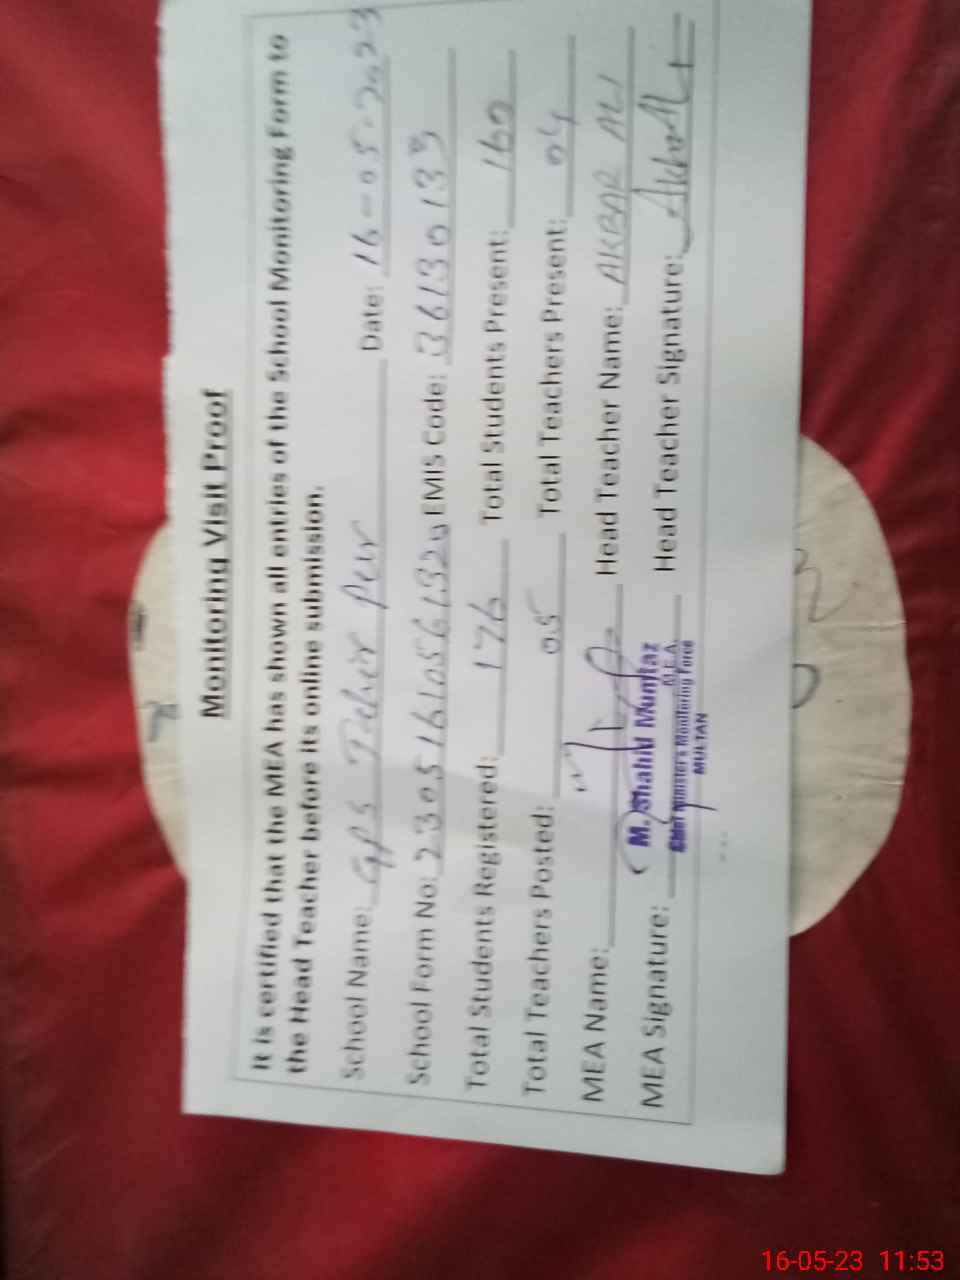 Monitoring Visit Proof
It is certified that the MEA has shown all entries of the School Monitoring Form to
the Head Teacher before its online submission.
School Name: GPS Tahir Pur Date: 16-05-2023
School Form No: EMIS Code: 36130133
Total Students Registered: 176 Total Students Present: 160
Total Teachers Posted: 05 Total Teachers Present: 04
MEA Name: Head Teacher Name: AKBAR ALI
MEA Signature: Head Teacher Signature: Akbar Ali
M. Shahid Mumtaz
M.E.A.
Chief Minister's Monitoring Force
MULTAN
16-05-23 11:53